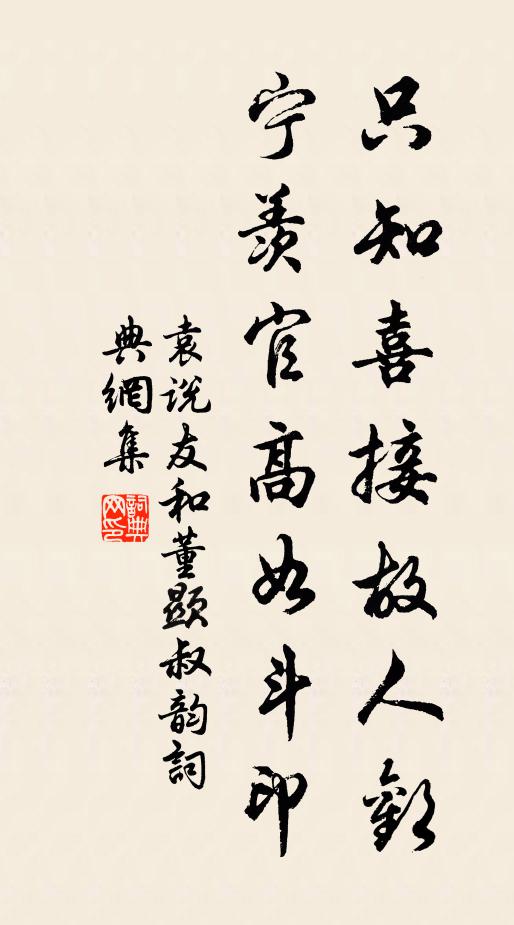 只知喜接故人歡
宁羨官高如斗印
袁说友和董顯叔韵詞
典網集
詞典网印